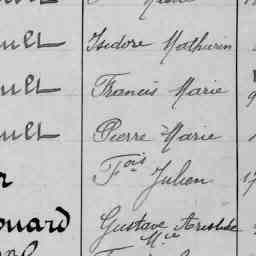 uet Isidore Mathurin
uet Francis Marie
uet Pierre-Marie
r Fois Julien 17
ouard Gustave Aristide
Mie